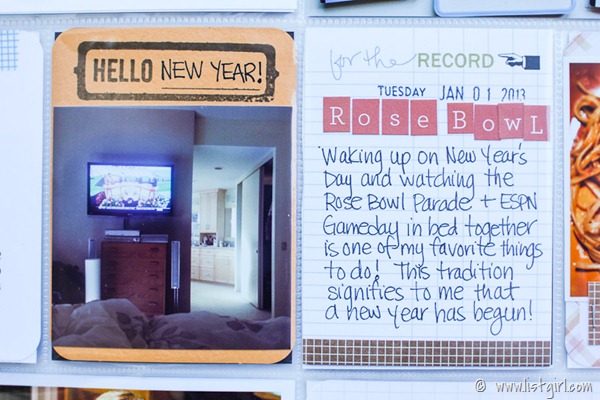 HELLO NEW YEAR!
for the RECORD
TUESDAY JAN 01 2013
ROSE BOWL
Waking up on New Year's
Day and watching the
Rose Bowl Parade + ESPN
Gameday in bed together
is one of my favorite things
to do! This tradition
signifies to me that
a new year has begun!
© www.listgirl.com